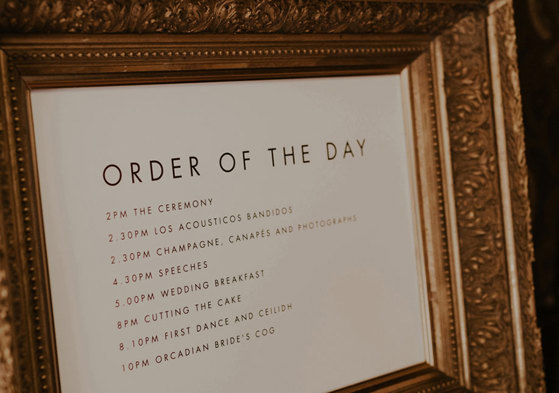 ORDER OF THE DAY
2PM THE CEREMONY
2.30PM LOS ACOUSTICOS BANDIDOS
2.30PM CHAMPAGNE, CANAPÉS AND PHOTOGRAPHS
4.30PM SPEECHES
5.00PM WEDDING BREAKFAST
8PM CUTTING THE CAKE
8.10PM FIRST DANCE AND CEILIDH
10PM ORCADIAN BRIDE'S COG